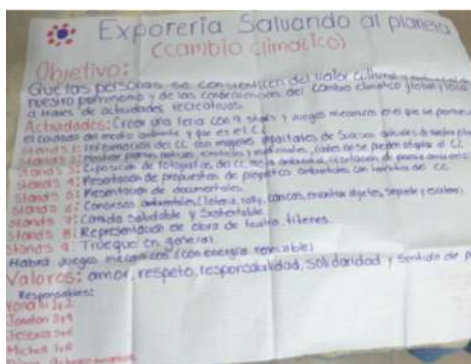 Exporería Salvando al planeta
(cambio climatico)
Objetivo:
Que las personas se concienticen del valor cultural y
nuestro patrimonio y de las del cambio climatico global y local
a traves de actividades recreativas.
Actividades: Crear una feria con 9 stands y juegos mecanicos en el que se
el cuidado del medio ambiente y que es el CC
Stand's 1: Informacion del CC con imagenes impactales de sucesos
Stands 2: Mostrar plantas y medicinales, al CC
Stands 3: Exposicion de fotografias del CC
Stands 4: Presentacion de propuestas de proyectos ambientales con del CC
Stands 5: Presentación de documentales.
Stands 6: Concursos ambientales (loteria, rally, canicas, encontrar objetos, serpiente y escalera)
Stands 7: Comida Saludable y Sustentable.
Stands 8: Representación de obra de teatro, titeres.
Stands 9: Trueque en general
Habrá Juegos mecanicos (con energia renovable)
Valores: amor, respeto, responsabilidad, solidaridad y sentido de
Responsables:
1 y 2
Jonatan 3 y 4
5 y 6
Michell 7 y 8